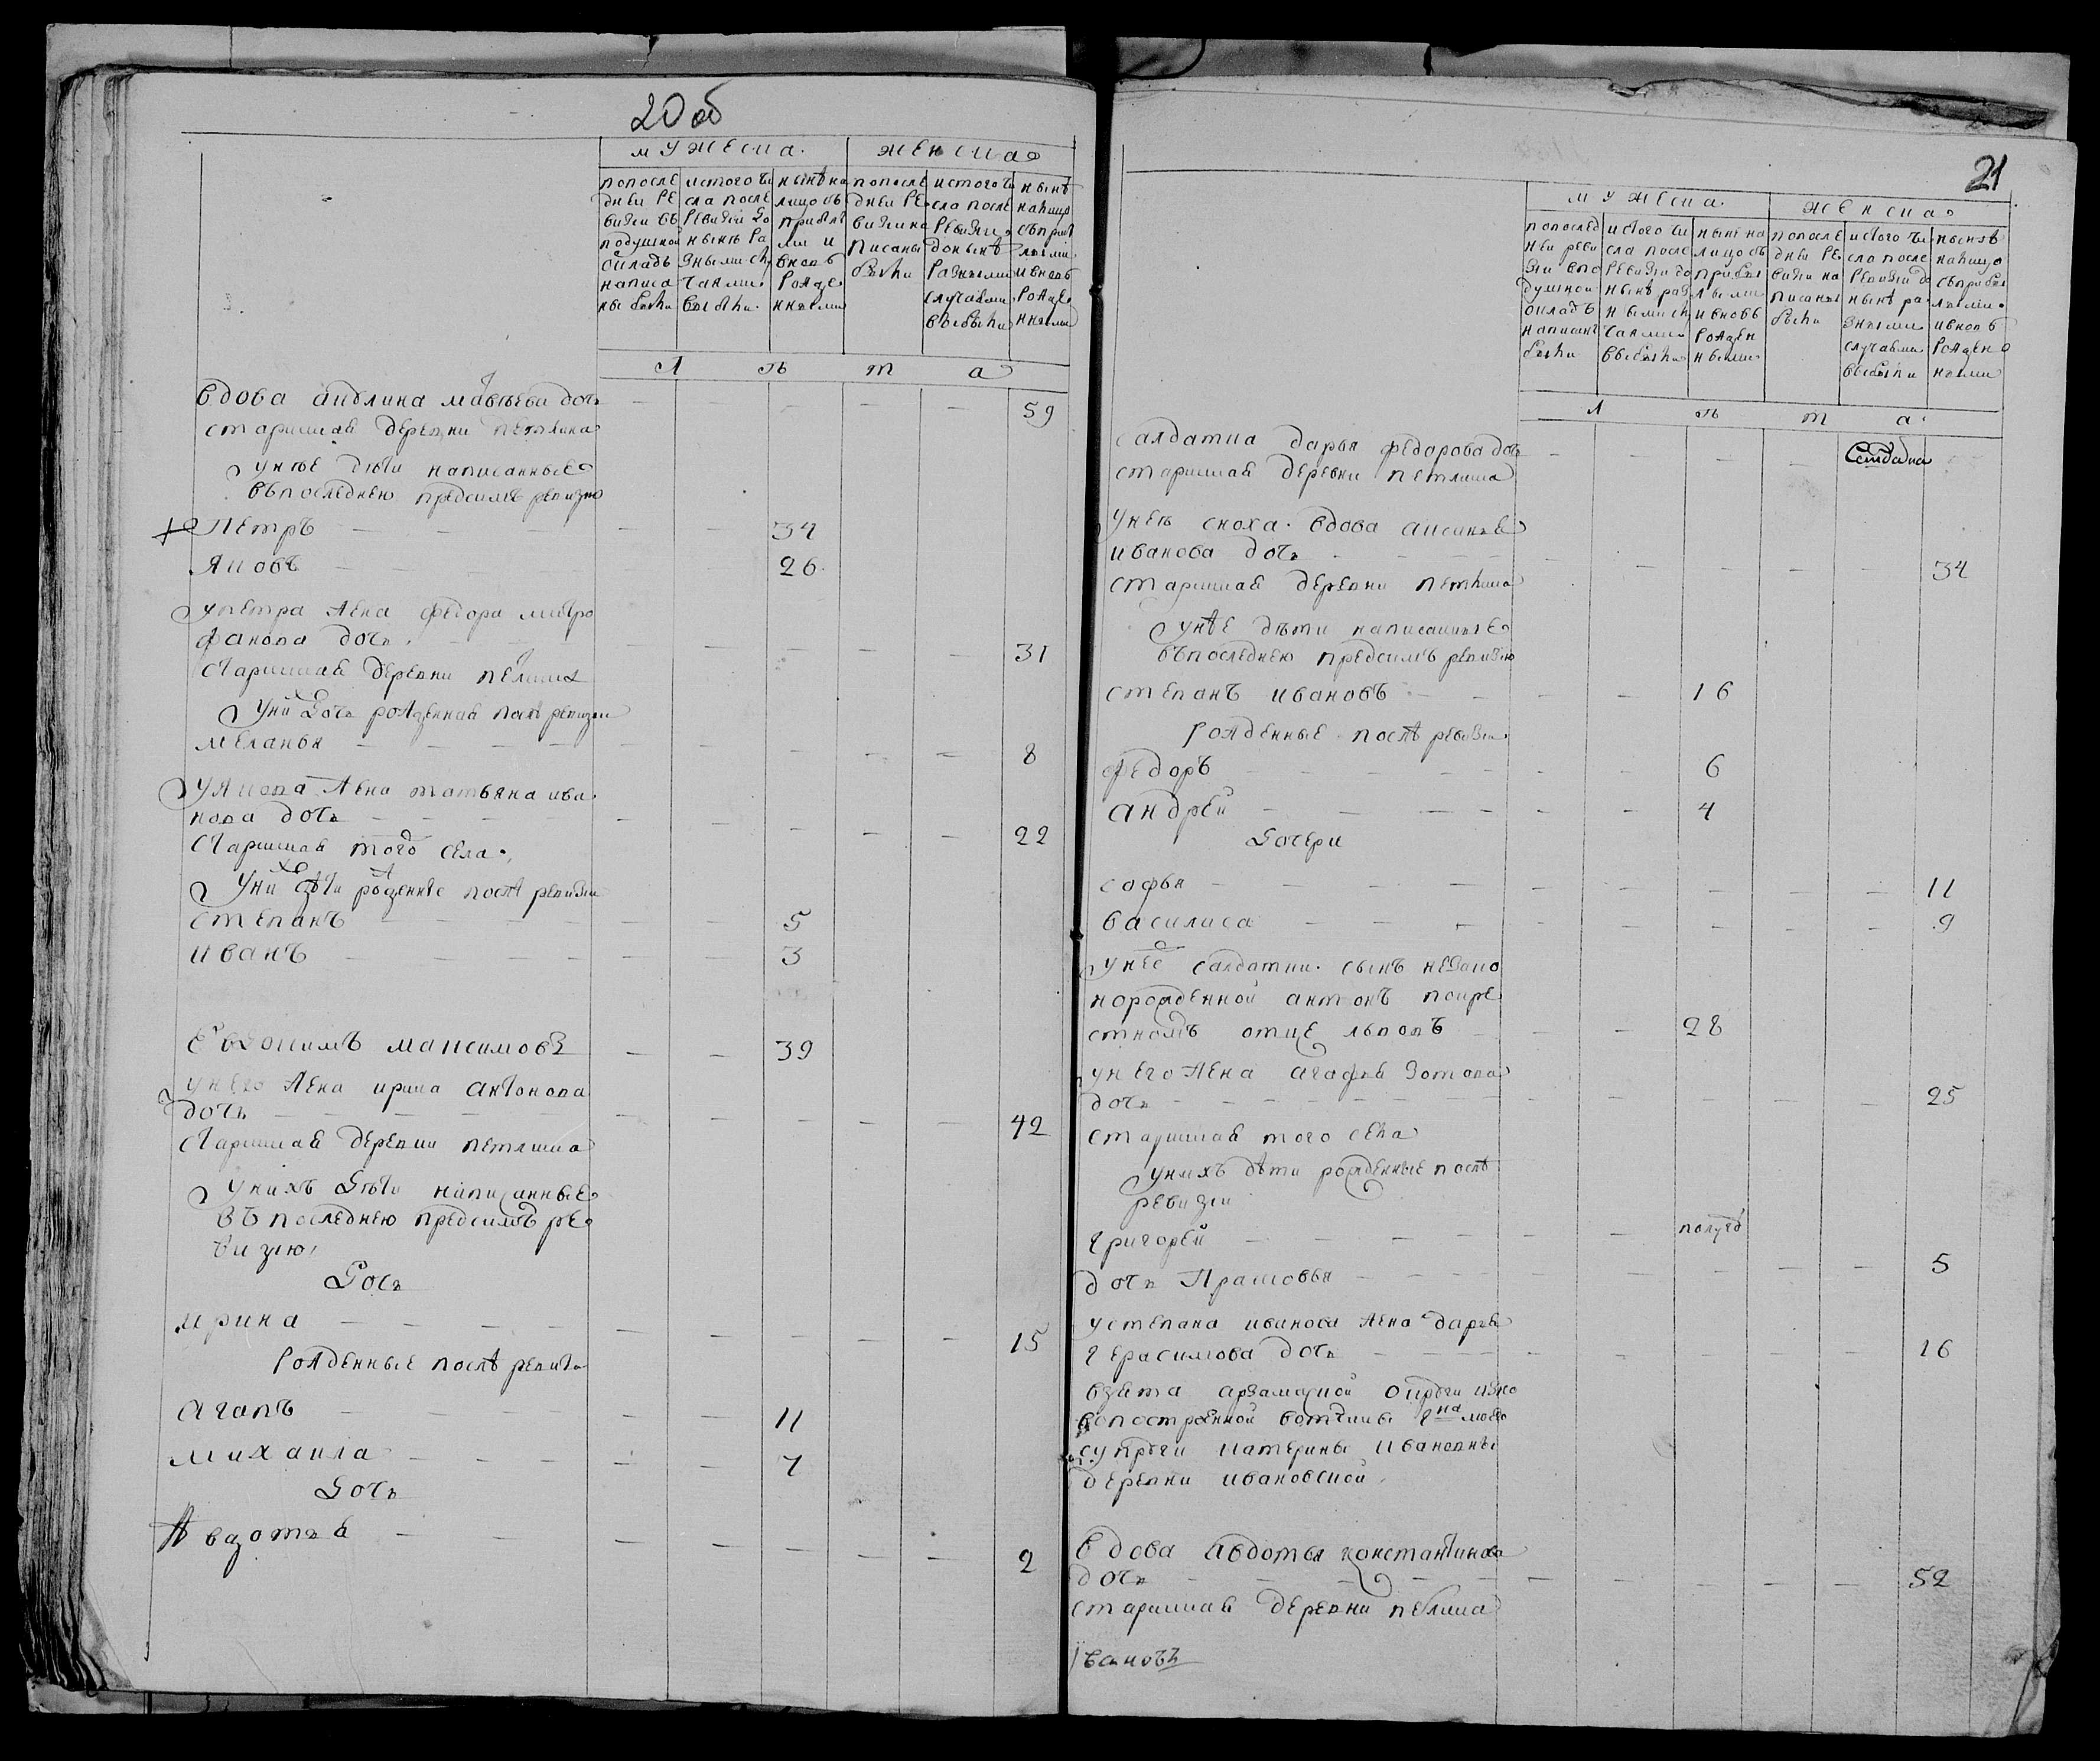 20 об
мужеска женска
попосле дней ревизии въ подушной окладъ написаны были
истого числа после ревизии до нынѣ разными случаями выбыли
нынѣ на лицо съ прибылыми и вновь рожденными
попоследней ревизии написаны были
истого числа после ревизии донынѣ разными случаями выбыли
нынѣ налицо съприбылыми ивновь рожденными
л ѣ т а
вдова акулина матвѣева дочь — — — — — 59
старинная деревни петлина
унѣе дѣти написанные
въпоследнею предсимъ ревизию
Петръ — — 34
Яковъ — — 26
упетра жена федора митро
фанова дочь — — — — — 31
старинная деревни петлина
уних дочь рожденная послѣ ревизии
меланья — — — — 8
уякова жена татьяна ива
нова дочь — — — — — 22
старинная того села
уних дѣти рожденные послѣ ревизии
степанъ — — 5
иванъ — — 3
Евдокимъ максимовъ — — 39
унего жена ирина антонова
дочь — — — — — 42
старинная деревни петлина
унихъ дѣти написанные
въпоследнею предсимъ ре
визию
Дочь
ирина — — — — — 15
рожденные послѣ ревизии
агапъ — — 11
михаила — — 7
Дочь
Авдотья — — — — — 2
21
мужеска женска
попоследней ревизии вподушной окладъ написаны были
истого числа после ревизии до нынѣ разными случаями выбыли
ныне налицо съ прибылыми ивновь рожденными
попоследней ревизии написаны были
истого числа после ревизии до нынѣ разными случаями выбыли
нынѣ налицо съприбылыми ивновь рожденными
л ѣ т а
салдатка дарья федарова дочь — — — —
старинная деревни петлина
унея сноха вдова аксинья
иванова дочь — — — — — 34
старинная деревни петлина
унѣе дѣти написанные
въпоследнею предсимъ ревизию
степанъ ивановъ — — 16
рожденные послѣ ревизии
федоръ — — 6
андрей — — 4
Дочери
софья — — — — — 11
василиса — — — — — 9
унее салдатки сынъ незако
норожденной антонъ покре
стномъ отце львовъ — — 28
унего жена агафья зотова
дочь — — — — — 25
старинная того села
унихъ дѣти рожденные послѣ
ревизии
григорей — — полугод
дочь Прасковья — — — — — 5
устепана иванова жена дарья
герасимова дочь — — — — — 16
взята арзамаской округи изно
вопостроенной вотчины г на моею
супруги катерины ивановны
деревни ивановской
вдова авдотья константинова
дочь — — — — — 52
старинная деревни петлина
Ивановъ